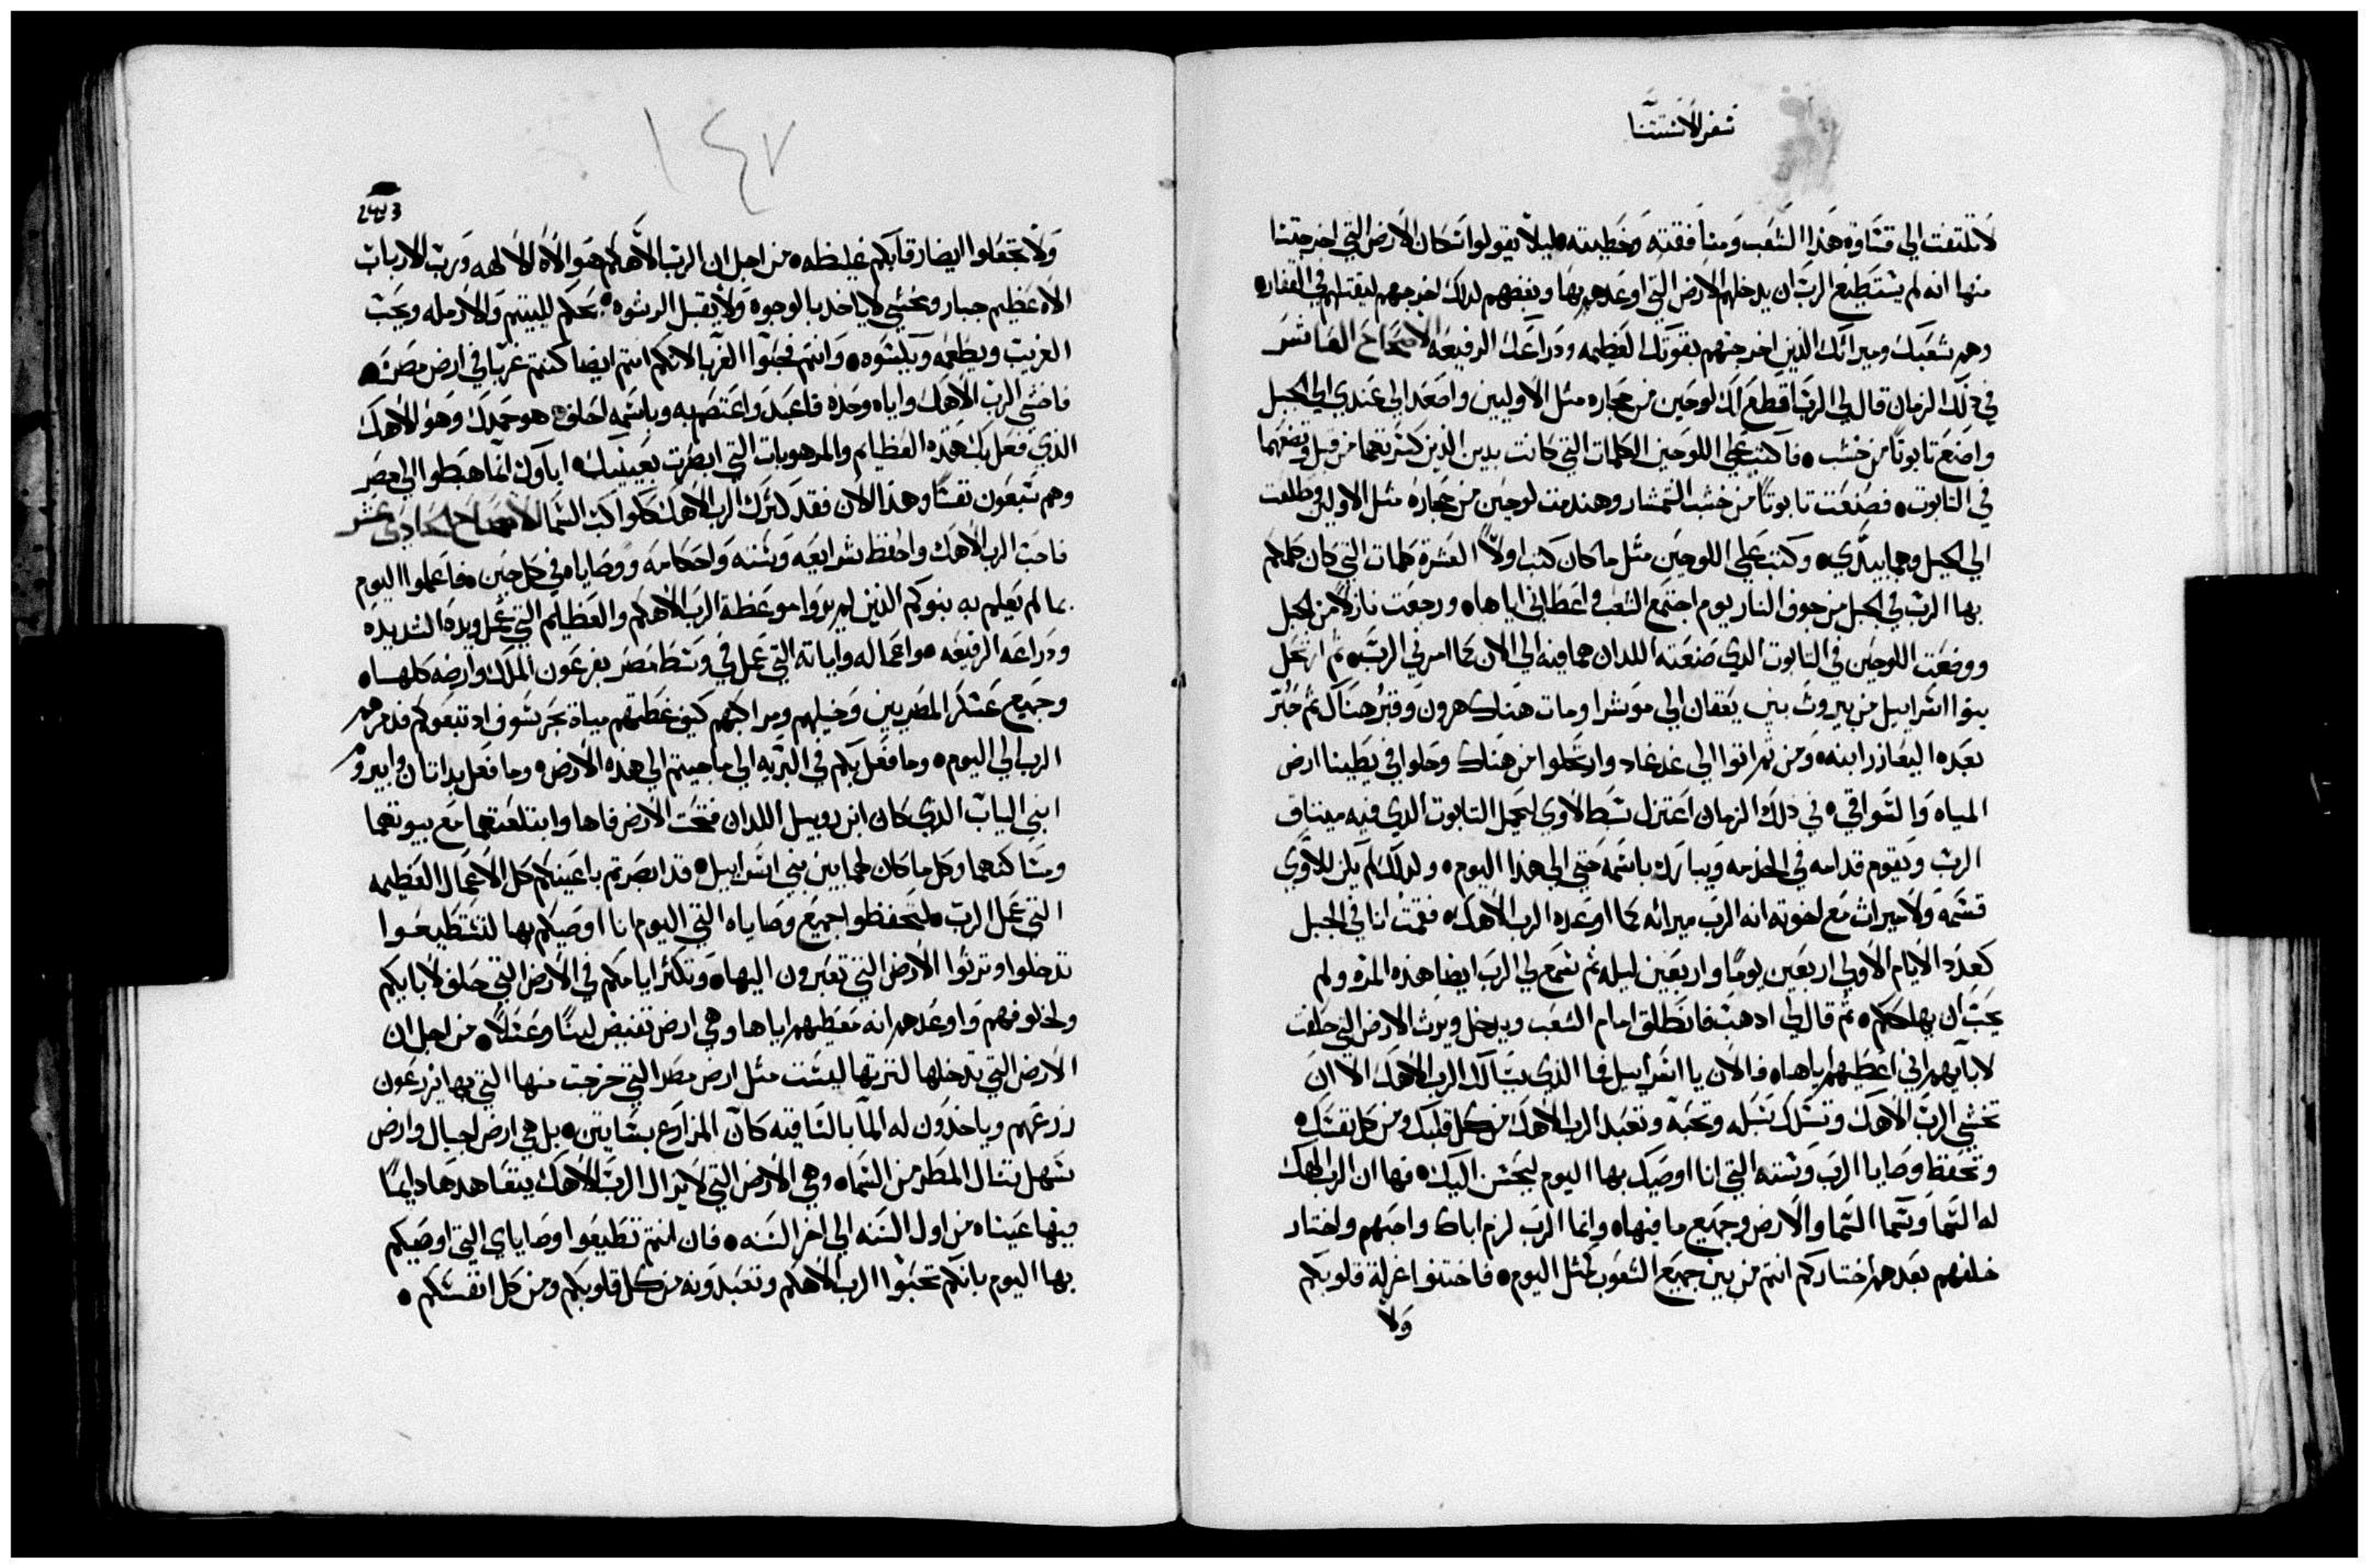 سفر الاستتنا
لا تلتفت الي قساوة هذا الشعب ومنافقته وخطيته ليلا يقولوا سكان الارض التي اخرجتنا
منها انه لم يستطيع الرب ان يدخلهم الارض التي اوعدهم بها وبغضهم لدلك اخرجهم ليقتلهم في القفار
وهم شعبك وميراثك الذين اخرجتهم بقوتك العظيمه ودراعك الرفيعه الاصحاح العاشر
في ذلك الزمان قال لي الرب اقطع لك لوحين من حجاره مثل الاوليين واصعد الي عندي الي الجبل
واصنع تابوتا من خشب فاكتب علي اللوحين الكلمات التي كانت بدين الذين كسرتهما من قبل وتضعهما
في التابوت فصنعت تابوتا من خشب الشمشار وهندمت لوحين من حجاره مثل الاولين وطلعت
الي الجبل وهما بيدي وكتب علي اللوحين مثل ما كان كتب اولا العشرة كلمات التي كان كلمكم
بها الرب في الجبل من جوف النار يوم اجتمع الشعب واعطاني اياها ورجعت نازلا من الجبل
ووضعت اللوحين في التابوت الدي صنعته اللدان هما فيه الي الان كما امرني الرب ثم ارتحل
بنوا اسراييل من بيروت بني يعقان الي موسرا ومات هناك هرون وقبر هناك ثم حبر
بعده اليعازر ابنه ومن ثم اتوا الي غدغاد وارتحلوا من هناك وحلوا في يطبتا ارض
المياه والسواقي في ذلك الزمان اعتزل سبط لاوي ليحمل التابوت الدي فيه ميتاق
الرب ويقوم قدامه في الخدمه ويبارك باسمه حتي الي هذا اليوم ولدلك لم يكن للاوي
قسمه ولا ميراث مع اخوته انه الرب ميراثه كما اوعده الرب الاهك فقمت انا في الجبل
كعدد الايام الاولي اربعين يوما واربعين ليله ثم سمع لي الرب ايضا هذه المرة ولم
يحب ان يهلككم ثم قال لي ادهب فانطلق امام الشعب ويدخل ويرث الارض التي حلفت
لابايهم اني اعطيهم اياها فالان يا اسراييل فما الذي يسالك الرب الاهك الا ان
تخشي الرب الاهك وتسلك سبله وتحبه وتعبد الرب الاهك من كل قلبك ومن كل نفسك
وتحفظ وصايا الرب وسننه التي انا اوصيك بها اليوم ليحسن اليك فها ان الرب الهك
له السما وسما السما والارض وجميع ما فيها وانما الرب لزم اباك واحبهم واختار
خلفهم بعدهم اختاركم انتم من بين جميع الشعوب كمثل اليوم فاختنوا غرلة قلوبكم
ولا
١٤٧
ولا تجعلوا ايضا رقابكم غليظه من اجل ان الرب الاهكم هو الاه الالهه ورب الارباب
الاه عظيم جبار ومخشي لا ياخد بالوجوه ولا يقبل الرشوه يحكم لليتيم والارمله ويحب
الغريب ويطعمه ويكسوه وانتم فحبوا الغربا لانكم انتم ايضا كنتم غربا في ارض مصر
فاخشي الرب الاهك واياه وحده فاعبد واعتصم به وباسمه احلف هو حمدك وهو الاهك
الذي فعل بك هذه العظايم والمرهوبات التي ابصرت بعينيك اباوك انما هبطوا الي مصر
وهم سبعون نفسا وهذا الان فقد كثرك الرب الاهك ككواكب السما الاصحاح الحادي عشر
فاحب الرب الاهك واحفظ شرايعه وسننه واحكامه ووصاياه في كل حين فاعلموا اليوم
بما لم يعلم به بنوكم الذين لم يروا موعظة الرب الاهكم والعظايم التي عمل ويده الشديده
ودراعه الرفيعه واعماله واياته التي عمل في وسط مصر بفرعون الملك وارضه كلها
وجميع عسكر المصريين وخيلهم ومراكبهم كيف غطتهم مياة بحر سوف اد تبعوكم فدمرهم
الرب الي اليوم وما فعل بكم في البريه الي ما جيتم الي هذه الارض وما فعل بداتان وابيرون
ابني الياب الدي كان ابن روبيل اللدان فتحت الارض فاها وابتلعتهما مع بيوتهما
ومساكنهما وكل ما كان لهما بين بني اسراييل قد ابصرتم باعينكم كل الاعمال العظيمه
التي عمل الرب لتحفظوا جميع وصاياه التي اليوم انا اوصيكم بها لتستطيعوا
تدخلوا وترثوا الارض التي تعبرون اليها وتكثر ايامكم في الارض التي حلف لابايكم
ولخلوفهم واوعدهم انه معطيهم اياها وهي ارض تفيض لبنا وعسلا من اجل ان
الارض التي تدخلها لترثها ليست مثل ارض مصر التي خرجت منها التي بها يزرعون
زرعهم وياخدون له الما بالساقيه كان المزارع بساتين بل هي ارض لجبال وارض
سهل تنال المطر من السما وهي الارض التي لا يزال الرب الاهك يتعاهدها دايما
فيها عيناه من اول السنه الي اخر السنه فان انتم تطيعوا وصاياي التي اوصيكم
بها اليوم بانكم تحبوا الرب الاهكم وتعبدونه من كل قلوبكم ومن كل انفسكم